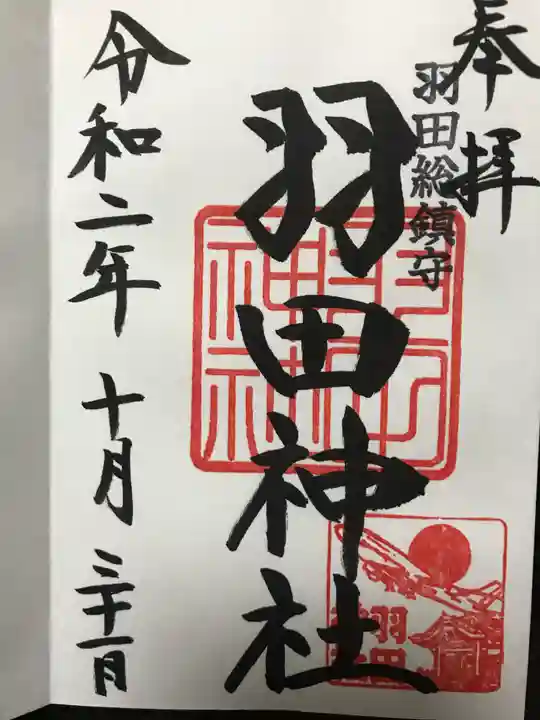 奉拝
羽田総鎮守
羽田神社
令和二年十月三十一日
羽田
神社